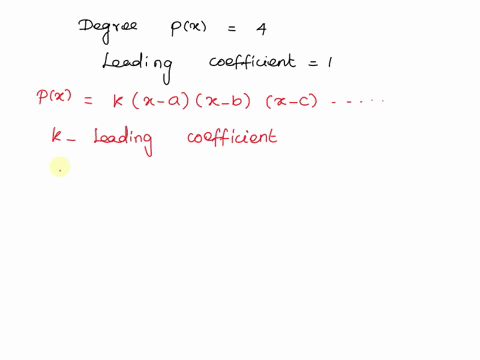 Degree P(x) = 4
Leading coefficient = 1
P(x) = k (x-a) (x-b) (x-c) - - - - -
k - Leading coefficient